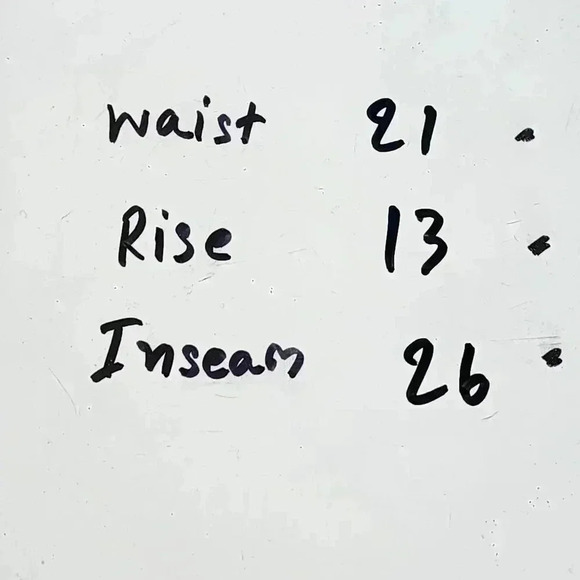 Waist 21
Rise 13
Inseam 26